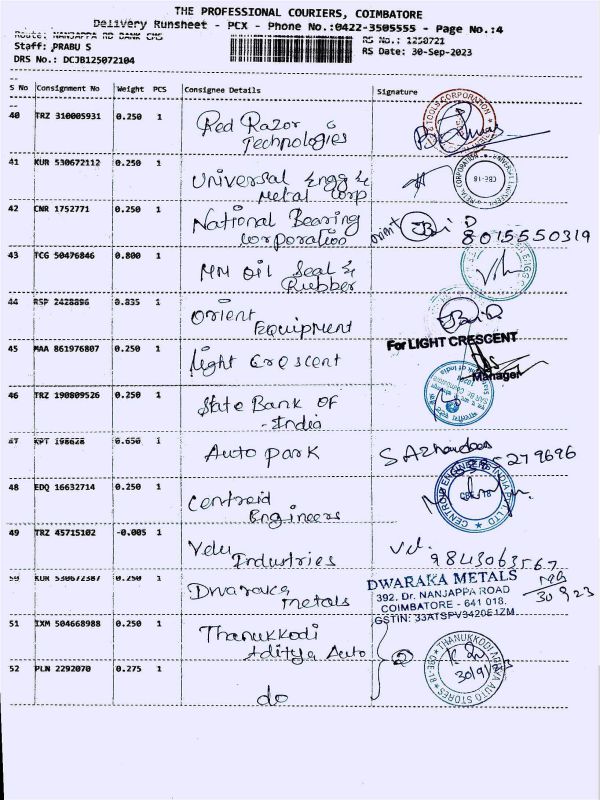 THE PROFESSIONAL COURIERS, COIMBATORE
Delivery Runsheet - PCX - Phone No.:0422-3505555 - Page No.:4
Route: NANJAPPA RD BANK CMS RS No.: 1250721
Staff: PRABU S RS Date: 30-Sep-2023
DRS No.: DCJB125072104
S No Consignment No Weight PCS Consignee Details Signature
40 TRZ 310005931 0.250 1 Red Razor
Technologies
41 KUR 530672112 0.250 1 Universal Engg &
Metal Corp
42 CNR 1752771 0.250 1 National Bearing
Corporation 8015550319
43 TCG 50476846 0.800 1 MM Oil Seal &
Rubber
44 RSP 2428896 0.835 1 Orient
Equipment
For LIGHT CRESCENT
45 MAA 861976807 0.250 1 Light Crescent
Manager
46 TRZ 190809526 0.250 1 State Bank OF
-India
47 KPT 198628 0.650 1 Auto park
48 EDQ 16632714 0.250 1 Centroid
Engineers
49 TRZ 45715102 -0.005 1 Velu
Industries 9843063567
50 KUR 530672387 0.250 1 Dwaraka
metals
DWARAKA METALS
392, Dr. NANJAPPA ROAD
COIMBATORE - 641 018.
GSTIN: 33ATSPV3420E1ZM
30 9 23
51 IXM 504668988 0.250 1 Thanukkodi
Aditya Auto
THANUKKODI ADITYA AUTO STORES
CBE-18
30/9/23
52 PLN 2292070 0.275 1 do